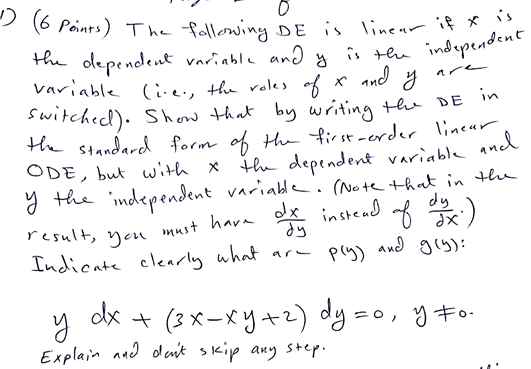 1) (6 Points) The following DE is linear if x is
the dependent variable and y is the independent
variable (i.e., the roles of x and y are
switched). Show that by writing the DE in
the standard form of the first-order linear
ODE, but with x the dependent variable and
y the independent variable. (Note that in the
result, you must have dx/dy instead of dy/dx.)
Indicate clearly what are p(y) and g(y):
y dx + (3x-xy+2) dy = 0, y ≠ 0.
Explain and don't skip any step.